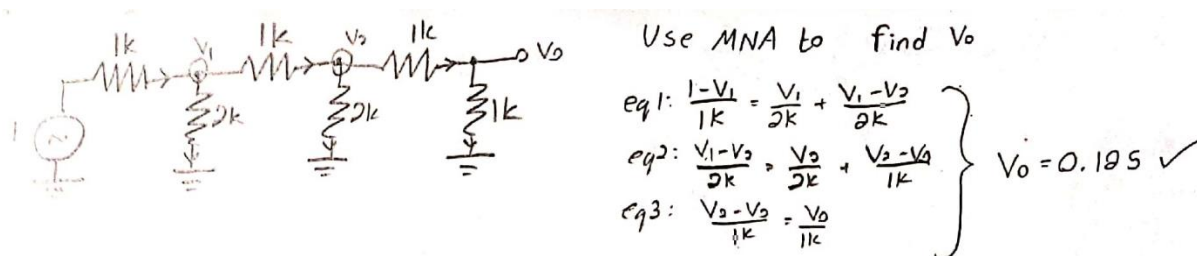 1k V1 1k V2 1k Vo
1 2k 2k 1k
Use MNA to find Vo
eq1: (1-V1)/1K = V1/2K + (V1-V2)/2K
eq2: (V1-V2)/2K = V2/2K + (V2-Vo)/1K
eq3: (V2-Vo)/1K = Vo/1K
} Vo = 0.125 ✓